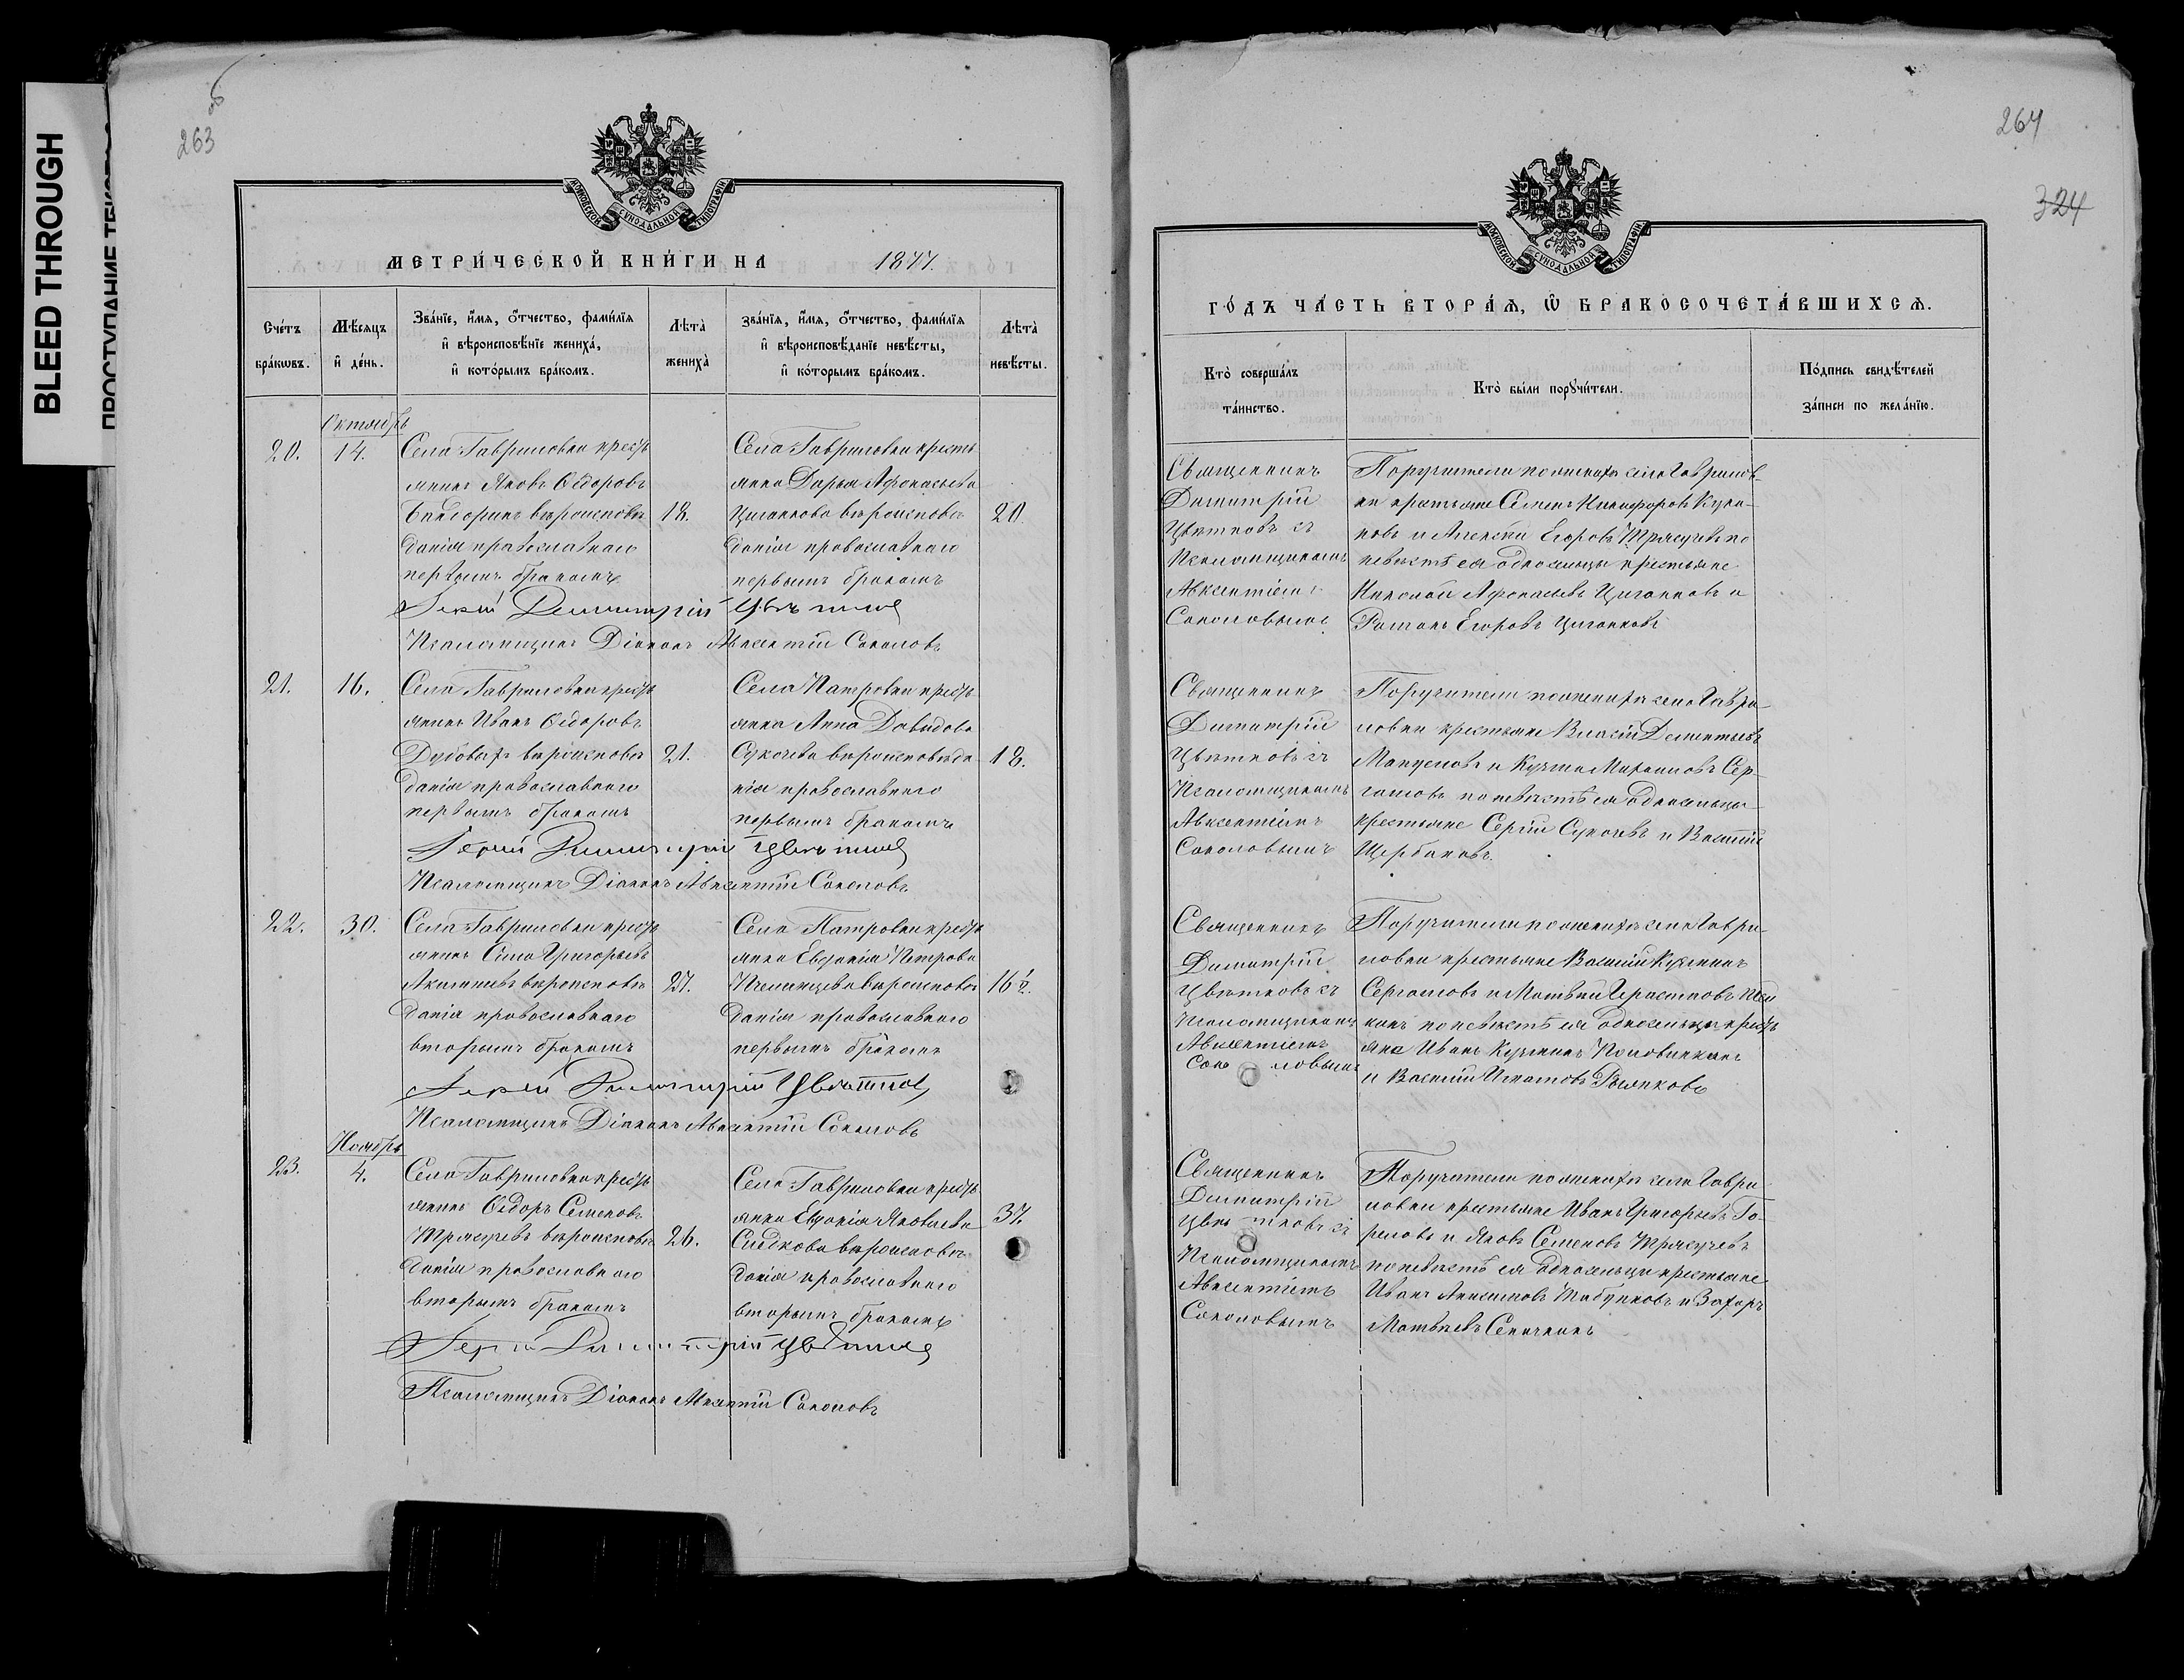 BLEED THROUGH
ПРОСТУПАНИЕ ТЕКСТА
263 об
МОСКОВСКОЙ СѴНОДАЛЬНОЙ ТИПОГРАФІИ
МЕТРИ́ЧЕСКОЙ КНИ́ГИ НА 1877.
Сче́тъ бра́кωвъ.
Мѣ́сяцъ и҆ де́нь.
Зва́нїе, и҆́мѧ, ѻ҆́тчество, фами́лїѧ и҆ вѣроисповѣ́нїе жениха́, и҆ кото́рымъ бра́комъ.
Лѣ́та̀ жениха̀
зва́нїѧ, и҆́мѧ, ѻ҆́тчество, фами́лїѧ и҆ вѣроисповѣ́данїе невѣ́сты, и҆ ко́торымъ бра́комъ.
Лѣта̀ невѣ́сты.
Октябрь
20. 14.
Села Гавриловки кресть
янинъ Яковъ Ѳедоровъ
вѣроисповѣ 18.
данія православнаго
первымъ бракомъ
Села Гавриловки кресть
янка Дарья Афонасьева
Циганкова вѣроисповѣ 20.
данія православнаго
первымъ бракомъ
Іерей Димитрій Цвѣтков
Псаломщикъ Діаконъ Авксентій Соколовъ
21. 16.
Села Гавриловки кресть
янинъ Иванъ Ѳедоровъ
Дубовыхъ вѣроисповѣ 21.
данія православнаго
первымъ бракомъ
Села Патровки кресть
янка Анна Давыдова
Сукочева вѣроисповѣда 18.
нія православнаго
первымъ бракомъ
Іерей Димитрій Цвѣтков
Псаломщикъ Діаконъ Авксентій Соколовъ
22. 30.
Села Гавриловки кресть
янинъ Сила Григорьевъ
Акимшевъ вѣроисповѣ 27.
данія православнаго
вторымъ бракомъ
Села Патровки кресть
янка Евдокія Петрова
вѣроисповѣ 16½.
данія православнаго
первымъ бракомъ
Іерей Димитрій Цвѣтков
Псаломщикъ Діаконъ Авксентій Соколовъ
Ноябрь
23. 4.
Села Гавриловки кресть
янинъ Ѳедоръ Семеновъ
Трясучевъ вѣроисповѣ 26.
данія православнаго
вторымъ бракомъ
Села Гавриловки кресть
янка Евдокія Яковлева 37
вѣроисповѣ
данія православнаго
вторымъ бракомъ
Іерей Димитрій Цвѣтков
Псаломщикъ Діаконъ Авксентій Соколовъ
264
324
МОСКОВСКОЙ СѴНОДАЛЬНОЙ ТИПОГРАФІИ
ГО́ДЪ ЧА́СТЬ ВТОРА́Ѧ, Ѡ҆ БРАКОСОЧЕТА́ВШИХСѦ.
Кто̀ соверша́лъ та́инство.
Кто̀ бы́ли порꙋчи́тели.
По́дпись свидѣ́телей за́писи по жела́нїю.
Священникъ
Димитрій
Цвѣтковъ съ
Псаломщикомъ
Авксентіемъ
Соколовымъ
Поручители по женихѣ села Гаврилов-
ки крестьяне Семенъ Никифоровъ Кула-
ковъ и Алексѣй Егоровъ Трясучевъ по
невѣстѣ ея односельцы крестьяне
Николай Афонасьевъ Циганковъ и
Романъ Егоровъ Циганковъ
Священникъ
Димитрій
Цвѣтковъ съ
Псаломщикомъ
Авксентіемъ
Соколовымъ
Поручители по женихѣ села Гаври-
ловки крестьяне Власій Дементьевъ
Мануиловъ и Кузьма Михаиловъ Сер-
по невѣстѣ ея односельцы
крестьяне Сергій Сукочевъ и Василій
Щербаковъ.
Священникъ
Димитрій
Цвѣтковъ съ
Псаломщикомъ
Авксентіемъ
Соколовымъ
Поручители по женихѣ села Гаври-
ловки крестьяне Василій Кузминъ
и Матвѣй
по невѣстѣ ея односельцы кресть
яне Иванъ Кузминъ Половинкинъ
и Василій Игнатовъ
Священникъ
Димитрій
Цвѣтковъ съ
Псаломщикомъ
Авксентіемъ
Соколовымъ
Поручители по женихѣ села Гаври
ловки крестьяне Иванъ Григорьевъ Го-
реловъ и Яковъ Семеновъ Трясучевъ
по невѣстѣ ея односельцы крестьяне
Иванъ Анисимовъ Табунковъ и Захаръ
Матвѣевъ Сеничкинъ